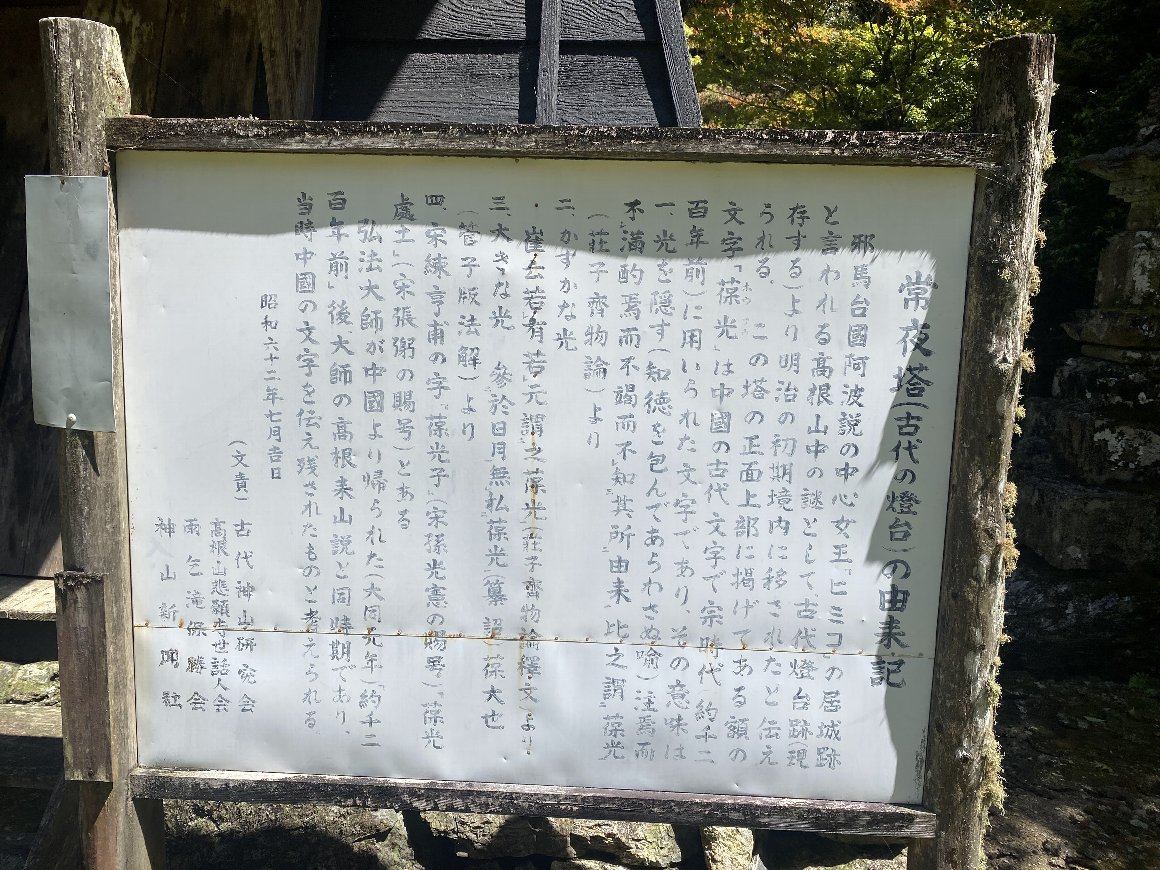 常夜塔(古代の燈台)の由来記
邪馬台國阿波説の中心女王「ヒミコ」の居城跡
と言われる高根山中の謎として、古代燈台跡(現
存する)より明治の初期境内に移されたと伝え
られる。 この塔の正面上部に掲げてある額の
文字「葆光」は中國の古代文字で宗時代(約千二
百年前)に用いられた文字であり、その意味は
一、光を隠す(知徳を包んであらわさぬ喻)注焉而
不滿酌焉而不竭而不知其所由来比之謂「葆光」
(莊子齊物論)より
二、かすかな光
・崔云若有若元謂之葆光(莊子齊物論釋文)より
三、大きな光 參於日月無私葆光(纂詔)葆大也
(管子版法解)より
四、宋練亨甫の字「葆光子」(宋孫光憲の賜号)「葆光
處士」(宋張弼の賜号)とある
弘法大師が中國より帰られた(大同元年)「約千二
百年前」後大師の高根来山説と同時期であり、
当時中國の文字を伝え残されたものと考えられる
昭和六十二年七月吉日
(文責)
古代神山研究会
高根山悲願寺世話人会
雨乞滝保勝会
神山新聞社